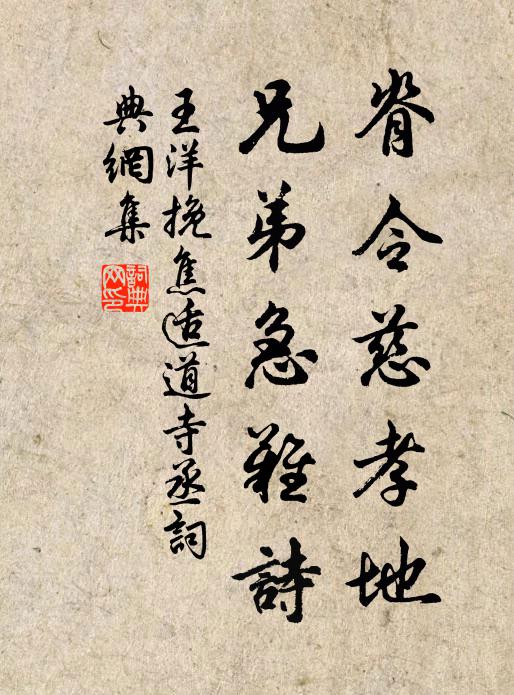 脊令慈孝地
兄弟急難詩
王洋挽焦适道寺丞詞
典網集
詞典網印